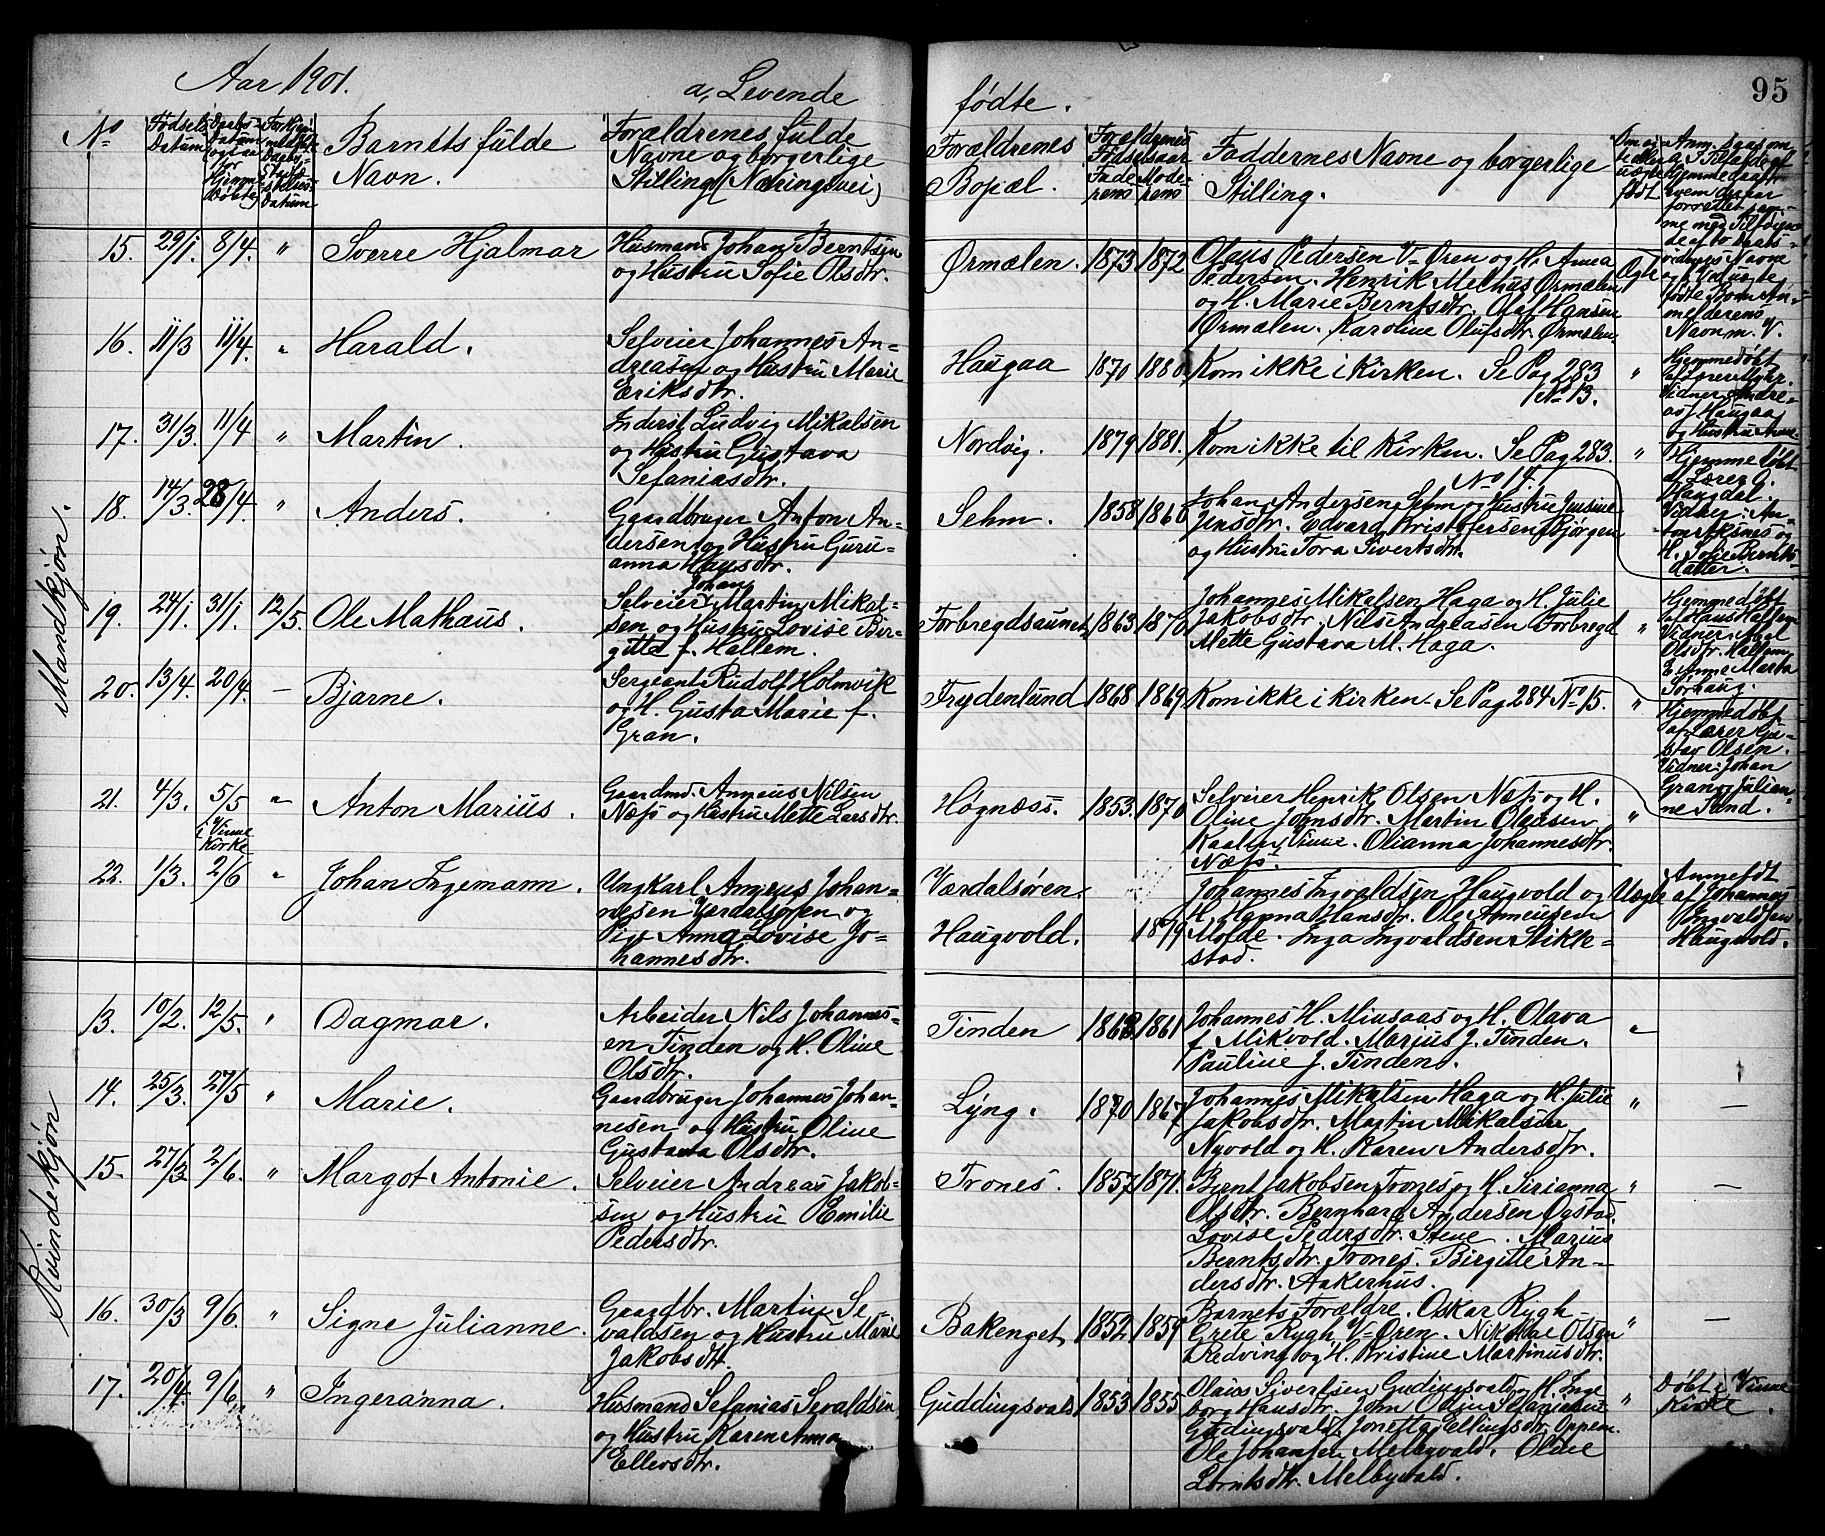 Aar 1901. a, Levende fødte. 95
No
Fødsels
Datum
Barnets fulde
Navn.
Forældrenes fulde
Navne og borgerlige
Stilling (Næringsvei)
Forældrenes
Bopæl.
Forældrenes
Fødselsaar
Faderens Moderens
Faddernes Navne og borgerlige
Stilling.
Mandkjøn.
15. 29/1. 8/4. " Sverre Hjalmar
Husmand Johan Berntsen
og Hustru Sofie Olsdtr.
Ørmælen. 1873 1872
Olaus Pedersen V-Øren og H. Anna
Pedersen. Henrik Melhus Ørmælen
og H. Marie Berntsdtr. Olaf Hansen
Ørmælen. Karoline Olufsdtr. Ørmælen.
Ægte
16. 11/3 11/4. " Harald.
Selveier Johannes An-
dreasen og Hustru Marie
Eriksdtr.
Haugaa 1870 1880
Kom ikke i Kirken. Se Pag 283
No 13.
"
Hjemmedøbt
Vidner: Andre-
as Haugaa
og Hustru
17. 31/3. 11/4 " Martin.
Inderst Ludvig Mikalsen
og Hustru Gustava
Sefaniasdtr.
Nordvig. 1879 1881.
Kom ikke til Kirken. Se Pag 283.
No 14.
"
Hjemmedøbt
af Lærer G.
Haugdal.
Vidner: An-
ton Aksnes og
H. Sofie Bernts-
datter.
18. 14/3. 28/4. " Anders.
Gaardbruger Anton An-
dersen og Hustru Guru-
anna Hansdtr.
Sehm. 1858 1860
Johan Andersen Sehm og Hustru Jensine
Jensdtr. Edvard Kristofersen Bjørgen
og Hustru Tora Sivertsdtr.
19. 24/1. 31/1. 12/5. Ole Mathæus.
Johan
Selveier Martin Mikal-
sen og Hustru Lovise Bir-
gitta f. Hallem.
Forbregdsaunet 1863 1870
Johannes Mikelsen Haga og H. Julie
Jakobsdtr. Nils Andreasen Forbregd
Mette Gustava M. Haga.
"
Hjemmedøbt
af Hans Hallem
Vidner:
Olsdtr. Hallem
Anne Marta
20. 13/4. 20/4. — Bjarne.
Sergeant Rudolf Holmvik
og H. Gusta Marie f.
Gran.
Frydenlund 1868 1869
Kom ikke i Kirken. Se Pag 284 No 15.
"
Hjemmedøbt
af Lærer Gu-
stav Olsen.
Vidner: Johan
Gran og Julian-
ne Sand.
21. 4/3. 5/5 " Anton Marius.
i Vinne
Kirke
Gaardmd. Anneus Nilsen
Næss og Hustru Mette Larsdtr.
Høgnæss. 1853. 1870
Selveier Henrik Olsen Næss og H.
Oline Johnsdtr. Martin Olausen
Kaalen Vinne. Olianna Johannesdtr.
Næss.
"
22. 1/3. 2/6 " Johan Ingemann.
Ungkarl Anneus Johan-
nesen Værdalsøren og
Pige Anna Lovise Jo-
hannesdtr.
Værdalsøren.
Haugvold. 1879
Johannes Ingvaldsen Haugvold og
H. Hanna Hansdtr. Ole Anneusen
Molde. Inga Ingvaldsen Stikle-
stad.
Uægte
Anmeldt
af Johannes
Ingvaldsen
Haugvold.
Kvindekjøn
13. 10/2. 12/5. " Dagmar.
Arbeider Nils Johannes-
en Tinden og H. Oline
Olsdtr.
Tinden 1868 1861
Johannes H. Minsaas og H. Olava
f. Mikvold. Marius J. Tinden.
Pauline J. Tinden.
"
14. 25/3. 27/5 " Marie.
Gaardbruger Johannes Johan-
nesen og Hustru Oline
Gustava Olsdtr.
Lyng. 1870 1867
Johannes Mikalsen Haga og H. Julie
Jakobsdtr. Martin Mikalsen
Nyvold og H. Karen Andersdtr.
" —
15. 27/3 2/6. " Margot Antonie.
Selveier Andreas Jakob-
sen og Hustru Emilie
Pedersdtr.
Trones. 1857 1871.
Bernt Jakobsen Trones og H. Sirianna
Olsdtr. Bernhard Andersen Ogstad.
Lovise Pedersdtr. Stene. Marius
Berntsdtr. Trones. Birgitte An-
dersdtr. Aakerhus.
" —
16. 30/3 9/6. " Signe Julianne.
Gaardbr. Martin Se-
valdsen og Hustru Marie
Jakobsdtr.
Bakenget 1852 1859
Barnets Forældre. Oskar Rygh
Grete Rygh V-Øren. Nikolai Olsen
Redving og H. Kristine Martinusdtr.
" —
17. 20/4. 9/6 " Ingeranna.
Husmand Sefanias Sevaldsen
og Hustru Karen Anna
Ellevsdtr.
Guddingsvald 1853 1855
Olaus Sivertsen Gudingsvald og H. Inge
borg Hansdtr. John Odin Sefaniasen
Gudingsvald. Jonetta Ellingsdtr. Oppem.
Ole Johansen Melbyvald. Oline
Lorntsdtr. Melbyvald.
"
Døbt i Vinne
Kirke.